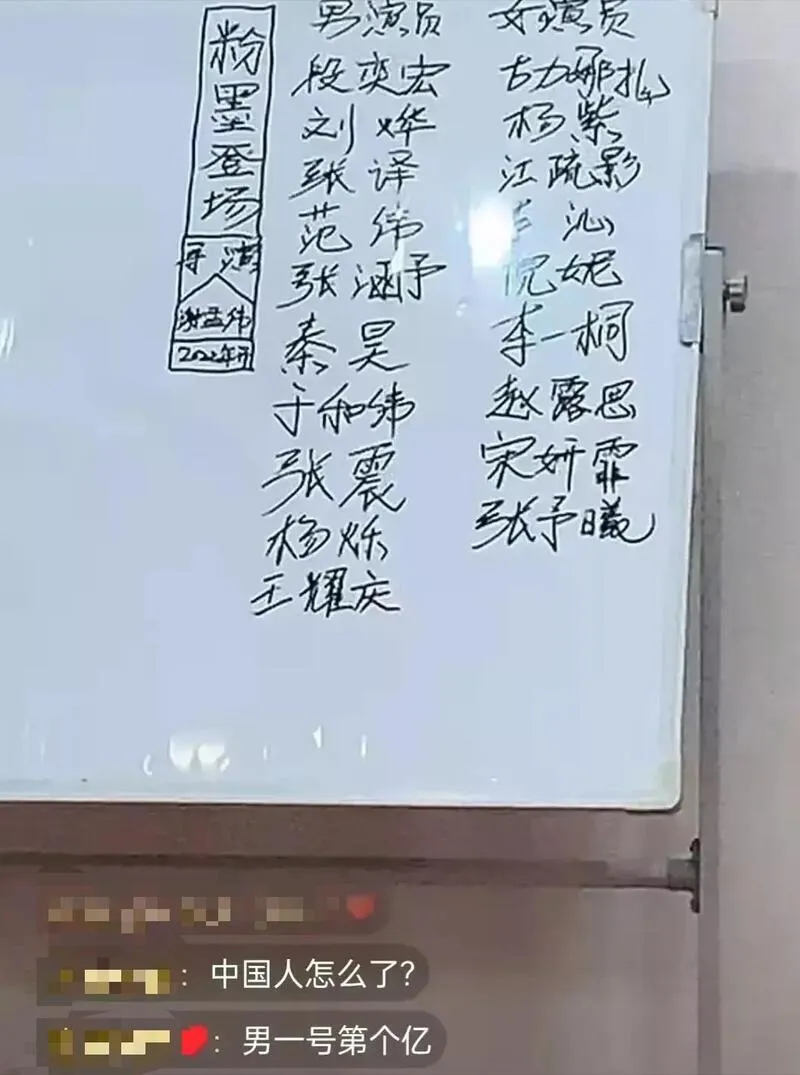 粉墨登场
导演
谢孟伟
2022年
男演员
段奕宏
刘烨
张译
范伟
张涵予
秦昊
于和伟
张震
杨烁
王耀庆
女演员
古力娜扎
杨紫
江疏影
沁
倪妮
李一桐
赵露思
宋妍霏
张予曦
：中国人怎么了?
：男一号第个亿